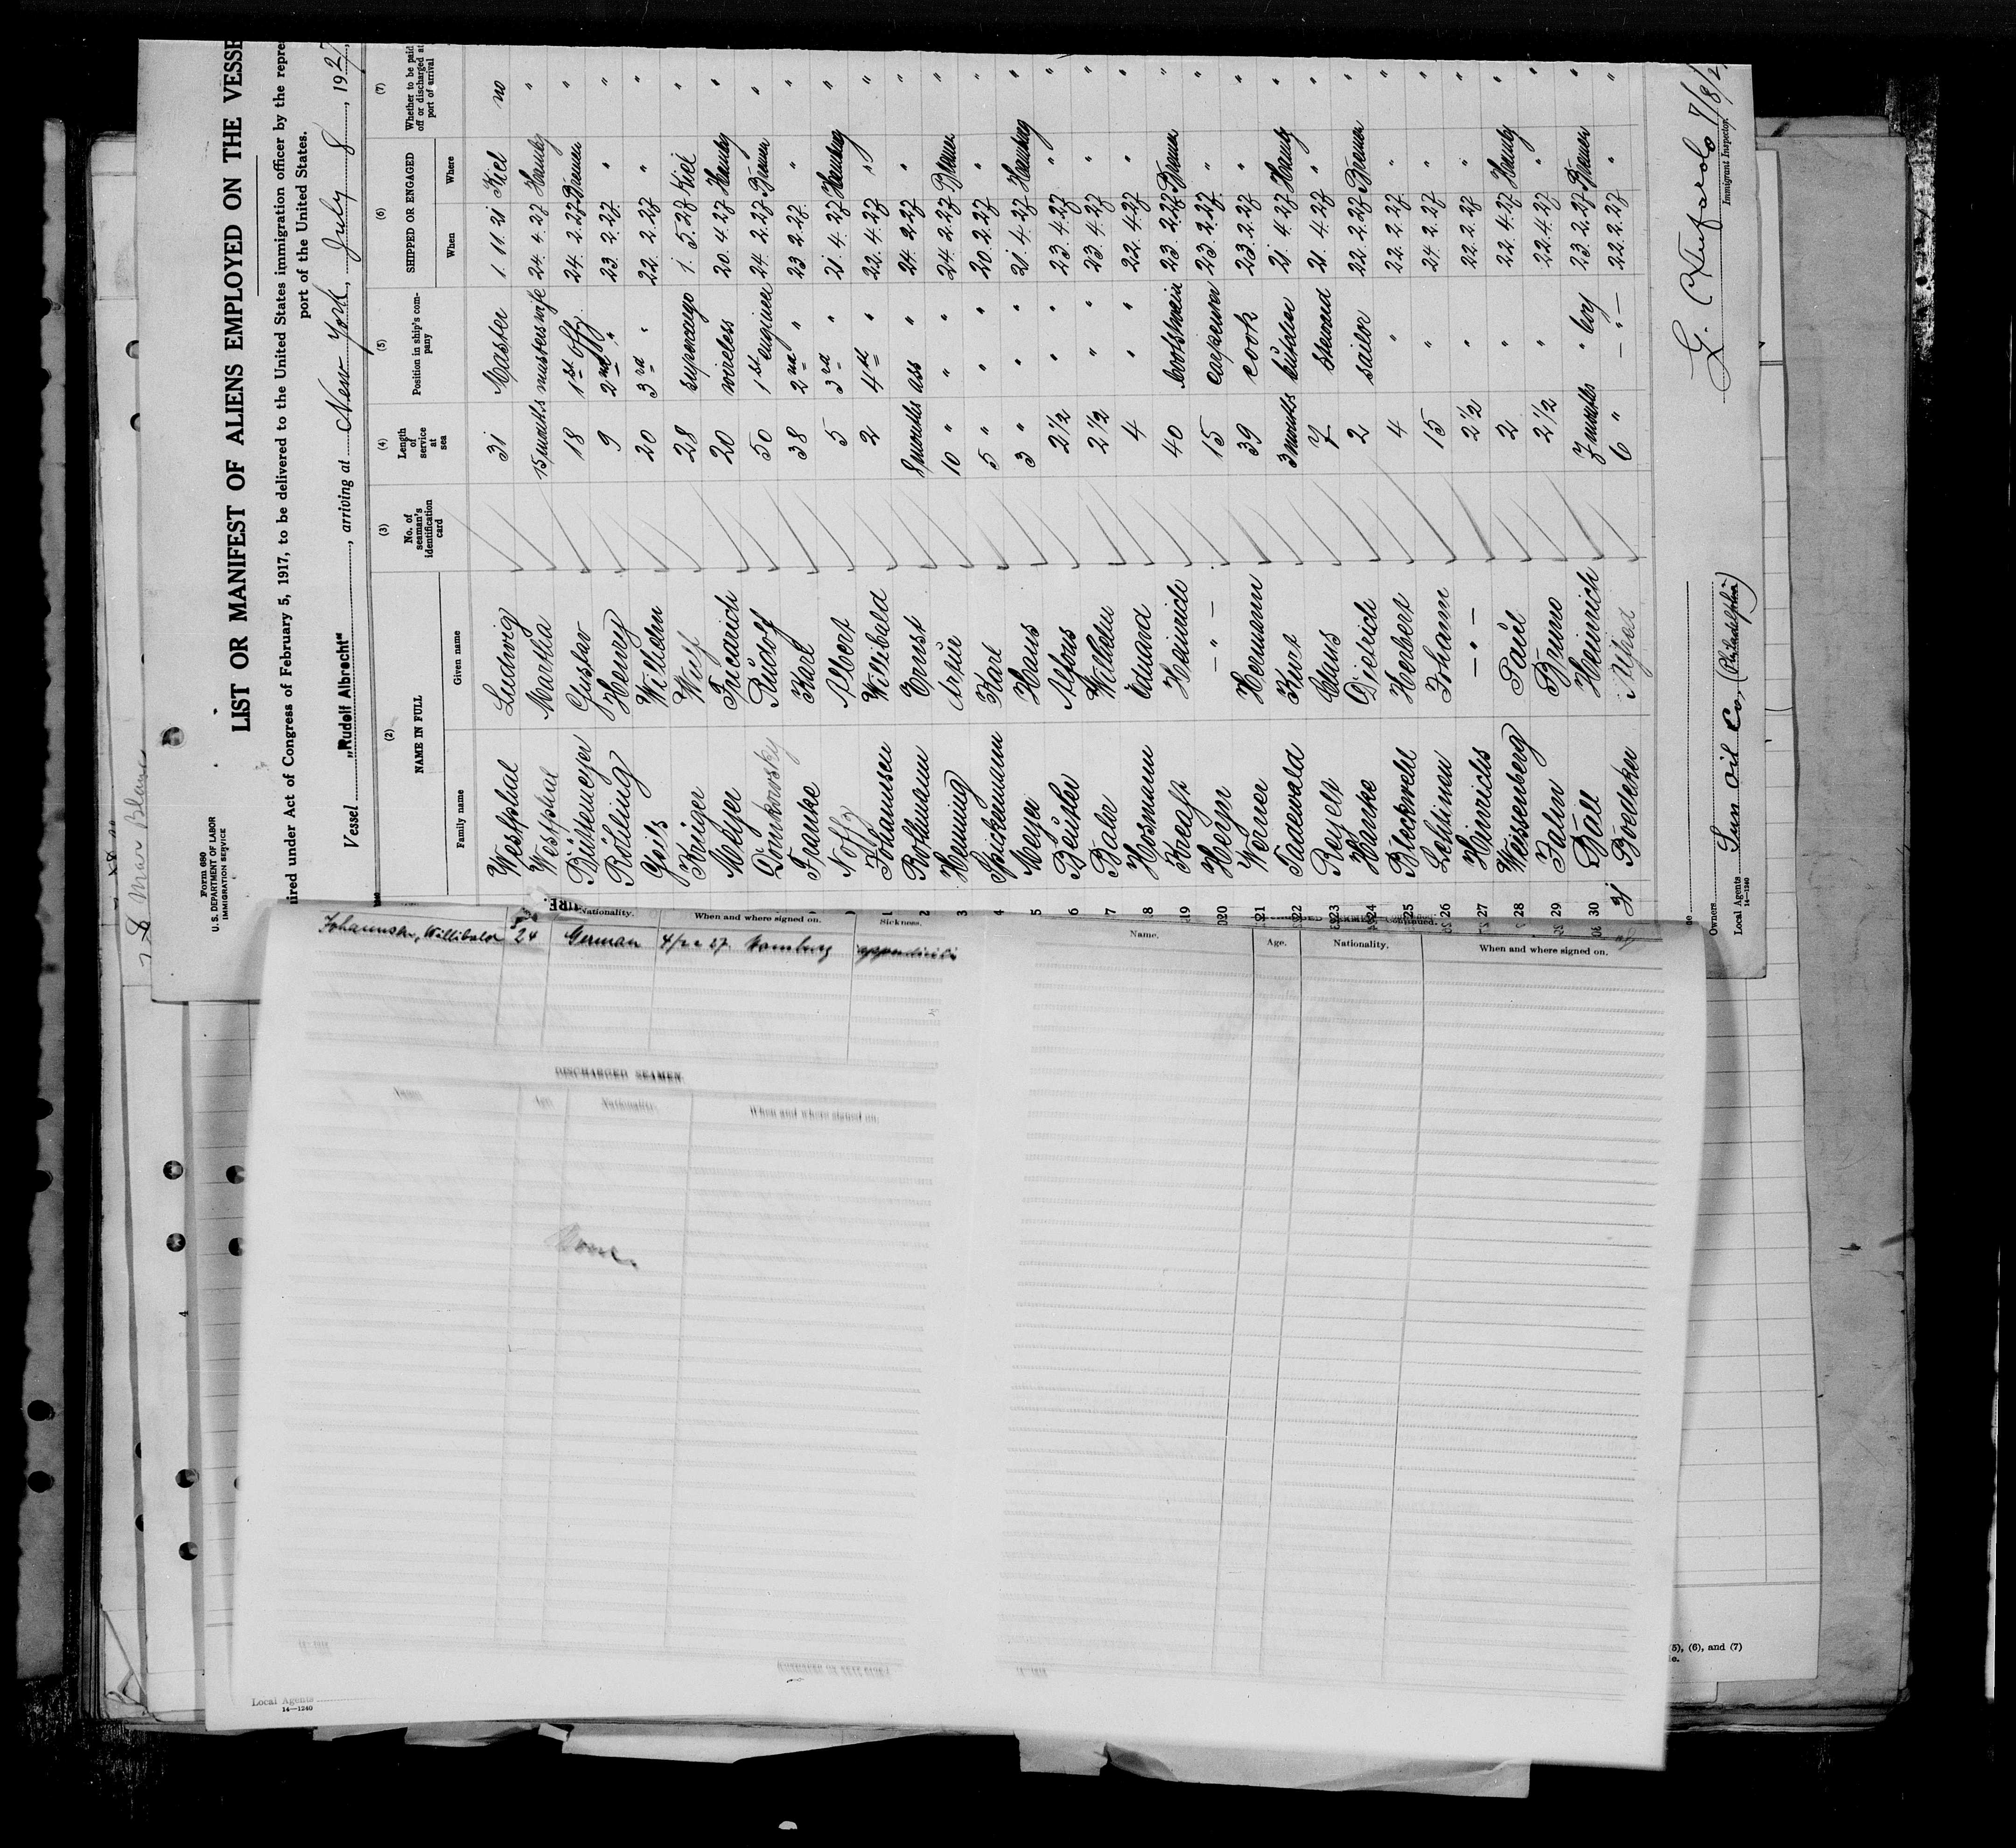 Form 680
U. S. DEPARTMENT OF LABOR
IMMIGRATION SERVICE
LIST OR MANIFEST OF ALIENS EMPLOYED ON THE VESSE
ired under Act of Congress of February 5, 1917, to be delivered to the United States immigration officer by the repre
port of the United States.
Vessel "Rudolf Albrecht", arriving at New York, July 8, 1927,
(2) (3) (4) (5) (6) (7)
NAME IN FULL No. of seaman's identification card Length of service at sea Position in ship's company SHIPPED OR ENGAGED Whether to be paid off or discharged at port of arrival
Family name Given name When Where
Westphal Ludwig 31 Master 1. 11. 21 Kiel no
Westphal Martha 15 months masters wife 24. 4. 27 Hambg "
Büstemeyer Gustav 18 1st offz. 24. 2. 27 Bremen "
Röhling Henry 9 2nd " 23. 2. 27. " "
Wilhelm 20 3rd " 22. 2. 27 " "
Krüger Wulf 28 supercargo 1. 5. 27 Kiel "
Meyer Friedrich 20 wireless 20. 4. 27 Hambg "
Domkowsky Rudolf 50 1st engineer 24. 2. 27 Bremen "
Franke Karl 38 2nd " 23. 2. 27. " "
Noffz Albert 5 3rd " 21. 4. 27 Hambg "
Johannsen Willibald 2 4th " 22. 4. 27 " "
Rothmann Ernst 8 months ass " 24. 2. 27 " "
Henning Artur 10 " " 24. 2. 27 Bremen "
Spickermann Karl 5 " " 20. 2. 27 " "
Meyer Hans 3 " " 21. 4. 27 Hamburg "
Beuhler Alfons 2 1/2 " 23. 4. 27 " "
Bahr Wilhelm 2 1/2 " 23. 4. 27 " "
Hosmann Eduard 4 " 22. 4. 27 " "
Kreaft Heinrich 40 bootshwain 23. 2. 27 Bremen "
Heryn — " — 15 carpenter 23. 2. 27. " "
Werner Hermann 39 cook 23. 2. 27 " "
Tadewald Kurt 3 months 21. 4. 27 Hambg "
Claus 7 steward 21. 4. 27 " "
Hanke Dietrich 2 sailor 22. 2. 27 Bremen "
Bleckwehl Herbert 4 " 22. 2. 27. " "
Lehtinen Johann 15 " 24. 2. 27 " "
Hinrichs — " — 2 1/2 " 22. 2. 27 " "
Weissenberg Paul 2 " 22. 4. 27 Hambg "
Fahn Bruno 2 1/2 " 22. 4. 27 " "
Döll Heinrich 7 months " boy 23. 2. 27 Bremen "
31 Boedeker Alfred 6 " — " — 22. 2. 27 " "
7/8/27
Immigrant Inspector.
Owners
Local Agents Sun Oil Co, (Philadelphia)
14—1240
Nationality. When and where signed on. Sickness.
Johannsen, Willibald 24 German 4/22 27. Hamburg appendicitis
DISCHARGED SEAMEN
Name. Age. Nationality. When and where signed on.
None.
Name. Age. Nationality. When and where signed on.
Local Agents
14—1240
(5), (6), and (7)